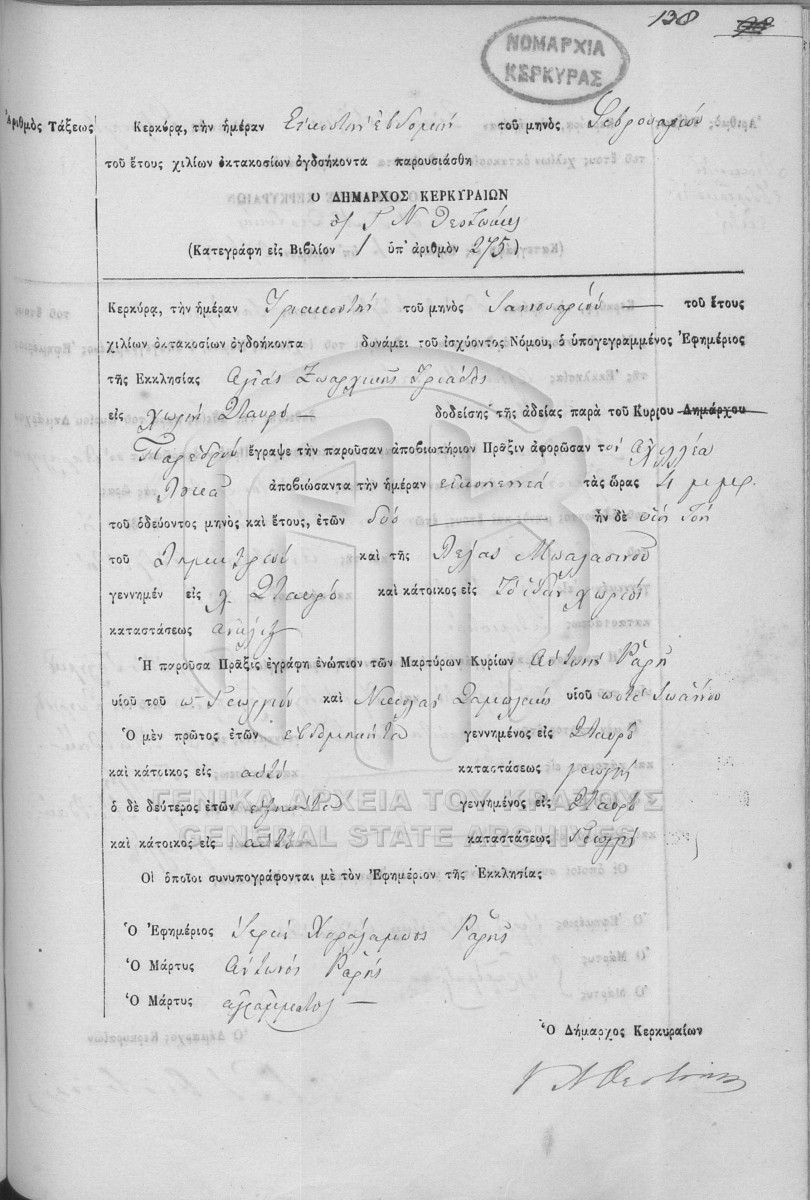 138
ΝΟΜΑΡΧΙΑ
ΚΕΡΚΥΡΑΣ
Ἀριθμὸς Τάξεως
Κερκύρᾳ, τὴν ἡμέραν Εἰκοστὴν ἑβδόμην τοῦ μηνὸς Φεβρουαρίου
τοῦ ἔτους χιλίων ὀκτακοσίων ὀγδοήκοντα παρουσιάσθη
Ο ΔΗΜΑΡΧΟΣ ΚΕΡΚΥΡΑΙΩΝ
Γ Ν Θεοτόκης
(Κατεγράφη εἰς Βιβλίον 1 ὑπ' ἀριθμὸν 275)
Κερκύρᾳ, τὴν ἡμέραν Τριακοστὴν τοῦ μηνὸς Ἰανουαρίου τοῦ ἔτους
χιλίων ὀκτακοσίων ὀγδοήκοντα δυνάμει τοῦ ἰσχύοντος Νόμου, ὁ ὑπογεγραμμένος Ἐφημέριος
τῆς Ἐκκλησίας Αγίας Ζωαρχικῆς Τριάδος
εἰς χωρίον Σταυρὸ δοδείσης τῆς ἀδείας παρὰ τοῦ Κυρίου Δημάρχου
Παρέδρου ἔγραψε τὴν παροῦσαν ἀποβιωτήριον Πρᾶξιν ἀφορῶσαν τὸν Ἀχιλλέα
Λουκᾶ ἀποβιώσαντα τὴν ἡμέραν εἰκοσιεννεά τὰς ὥρας 4 μ μρ.
τοῦ ὁδεύοντος μηνὸς καὶ ἔτους, ἐτῶν δύο ἦν δὲ υἱὸς
τοῦ Δημητρίου καὶ τῆς Μπαλασινοῦ
γεννημέν εἰς χ. Σταυρὸ καὶ κάτοικος εἰς τὸ ἴδιον χωρίον
καταστάσεως
Ἡ παροῦσα Πρᾶξις ἐγράφη ἐνώπιον τῶν Μαρτύρων Κυρίων Ἀντώνη Ῥάρη
υἱοῦ τοῦ π. Γεωργίου καὶ Νικολάου υἱοῦ ποτὲ Ἰωάννου
Ὁ μὲν πρῶτος ἐτῶν ἑβδομήκοντα γεννημένος εἰς Σταυρὸ
καὶ κάτοικος εἰς αὐτὸ καταστάσεως γεωργὸς
ὁ δὲ δεύτερος ἐτῶν ἑξήντα γεννημένος εἰς Σταυρὸ
καὶ κάτοικος εἰς αὐτὸ καταστάσεως Γεωργὸς
Οἱ ὁποῖοι συνυπογράφονται μὲ τὸν Ἐφημέριον τῆς Ἐκκλησίας
Ὁ Ἐφημέριος Ἱερεὺς Χαράλαμπος Ῥάρης
Ὁ Μάρτυς Ἀντώνιος Ῥάρης
Ὁ Μάρτυς ἀγράμματος
Ὁ Δήμαρχος Κερκυραίων
Γ Ν Θεοτόκης
ΓΕΝΙΚΑ ΑΡΧΕΙΑ ΤΟΥ ΚΡΑΤΟΥΣ
GENERAL STATE ARCHIVES